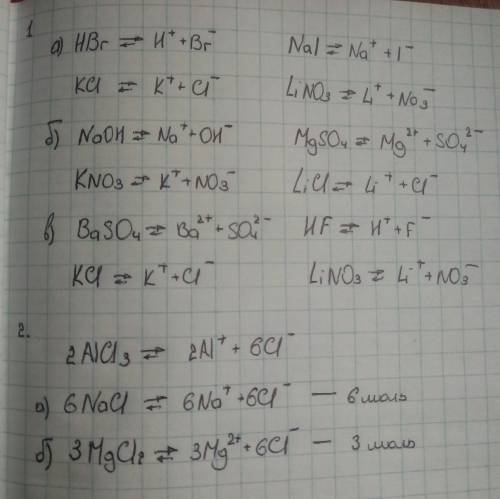 1
а) HBr ⇌ H⁺ + Br⁻ NaI ⇌ Na⁺ + I⁻
KCl ⇌ K⁺ + Cl⁻ LiNO₃ ⇌ Li⁺ + NO₃⁻
б) NaOH ⇌ Na⁺ + OH⁻ MgSO₄ ⇌ Mg²⁺ + SO₄²⁻
KNO₃ ⇌ K⁺ + NO₃⁻ LiCl ⇌ Li⁺ + Cl⁻
в) BaSO₄ ⇌ Ba²⁺ + SO₄²⁻ HF ⇌ H⁺ + F⁻
KCl ⇌ K⁺ + Cl⁻ LiNO₃ ⇌ Li⁺ + NO₃⁻
2.
2AlCl₃ ⇌ 2Al⁺ + 6Cl⁻
а) 6NaCl ⇌ 6Na⁺ + 6Cl⁻ — 6 моль
б) 3MgCl₂ ⇌ 3Mg²⁺ + 6Cl⁻ — 3 моль